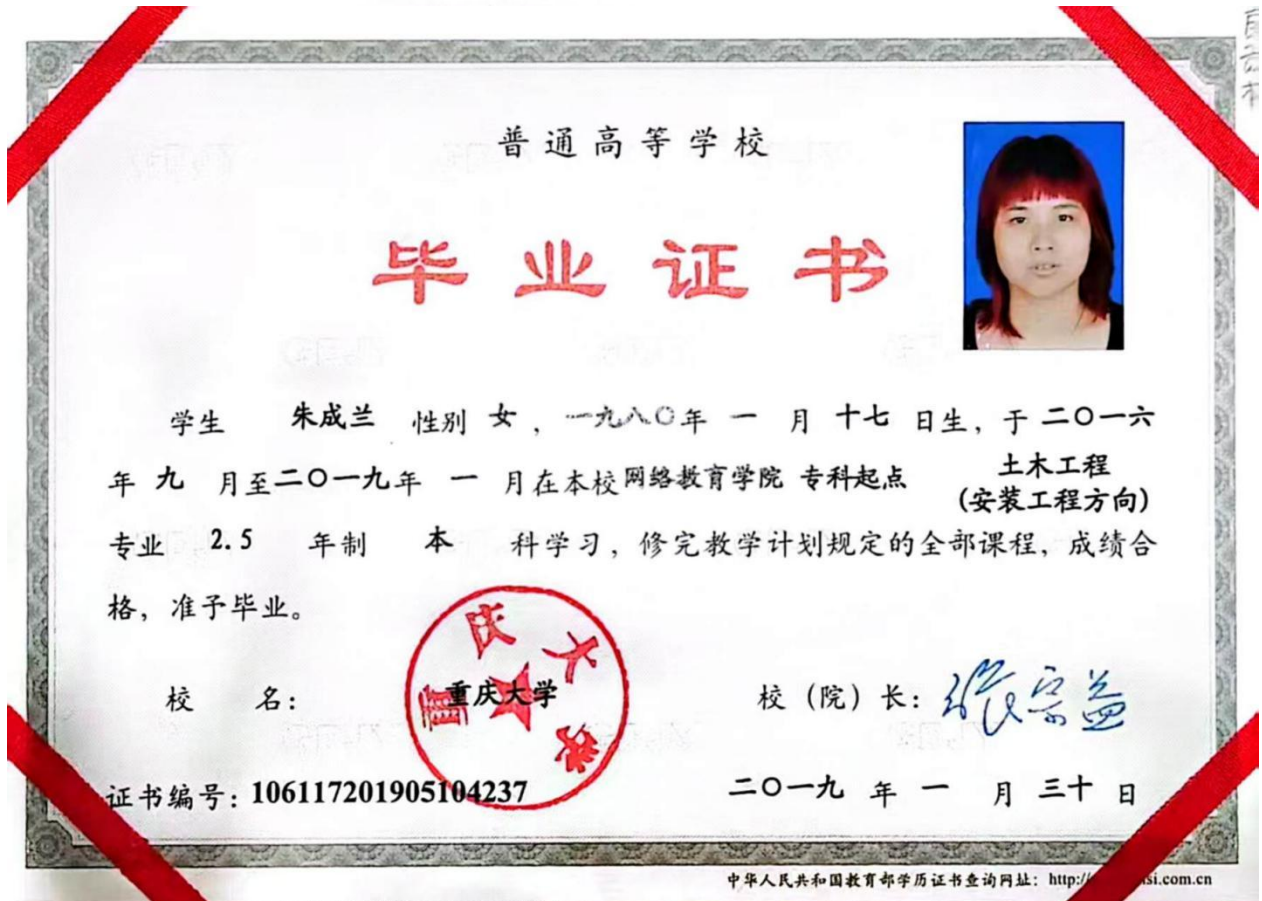 普通高等学校
毕业证书
学生 朱成兰 性别 女，一九八〇年 一 月 十七 日生，于 二〇一六
年 九 月至二〇一九年 一 月在本校 网络教育学院 专科起点 土木工程
(安装工程方向)
专业 2.5 年制 本 科学习，修完教学计划规定的全部课程，成绩合
格，准予毕业。
校 名：重庆大学
重庆大学
校（院）长：张宗益
证书编号：106117201905104237
二〇一九 年 一 月 三十 日
中华人民共和国教育部学历证书查询网址：http:// si.com.cn